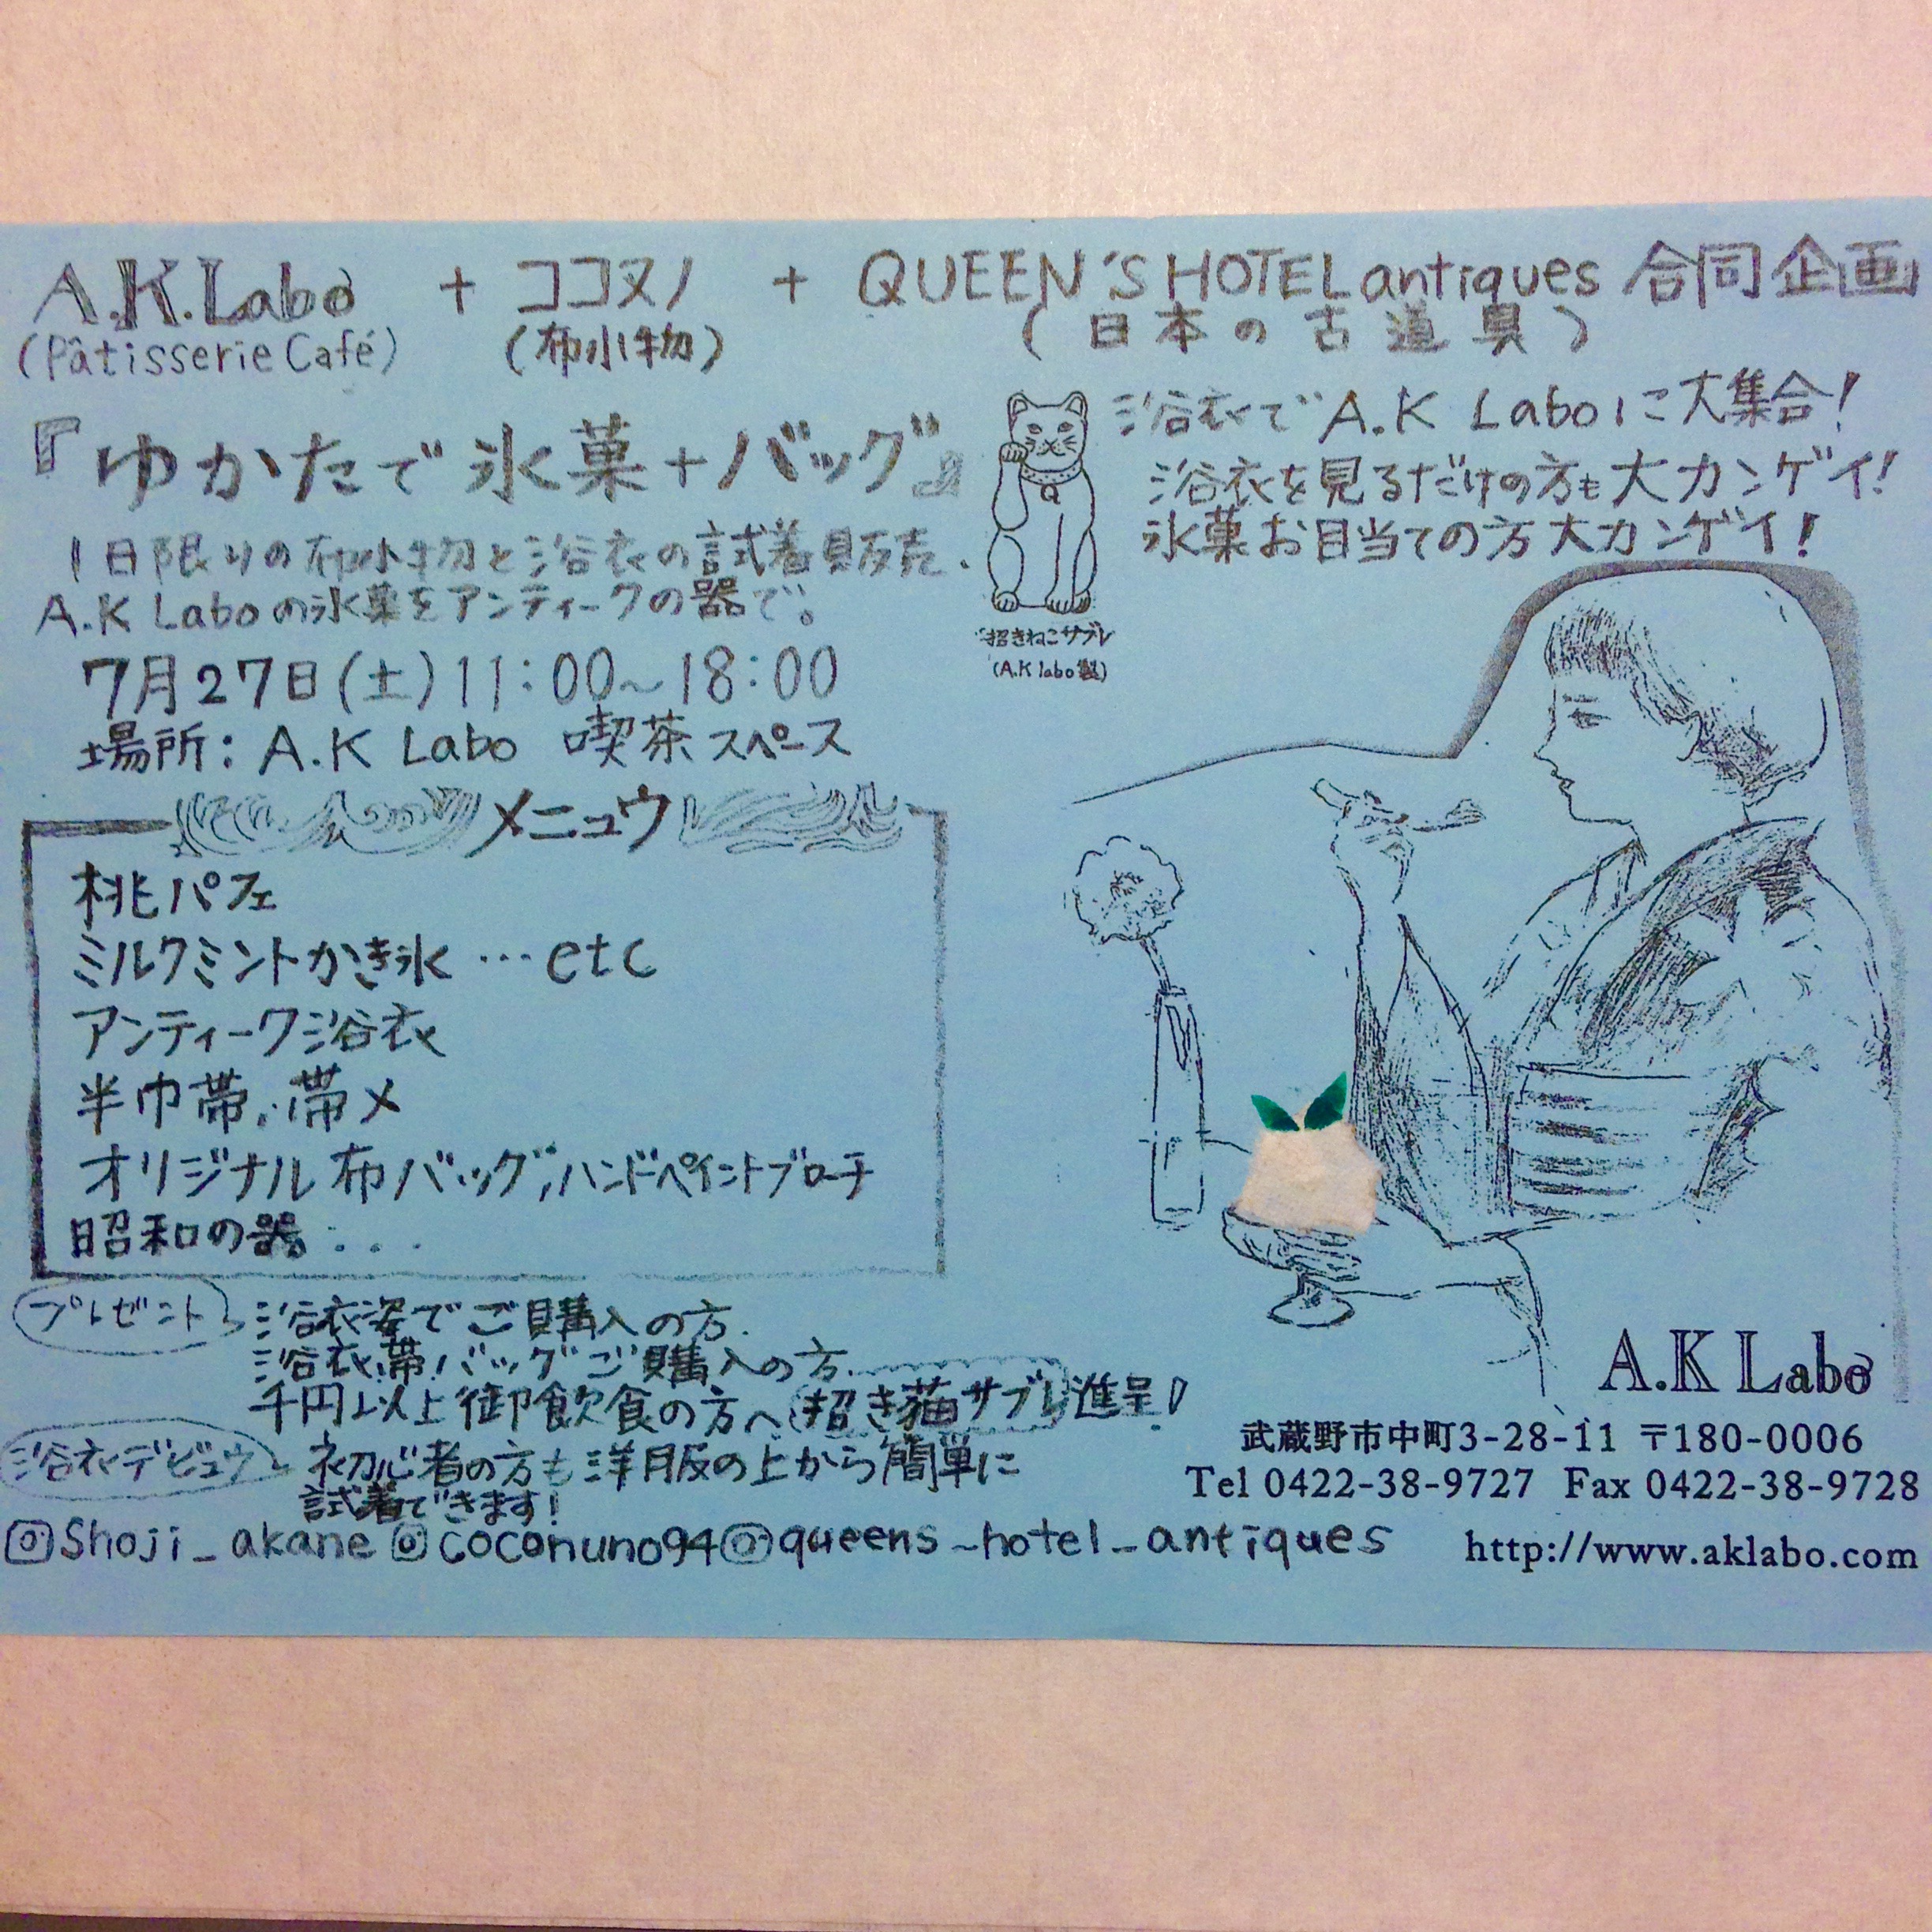 A.K.Labo + ココヌノ + QUEEN'S HOTEL antiques 合同企画
(Pâtisserie Café) (布小物) (日本の古道具)
『ゆかたで氷菓+バッグ』
1日限りの布小物と浴衣の試着販売.
A.K Laboの氷菓をアンティークの器で。
7月27日(土)11:00~18:00
場所: A.K Labo 喫茶スペース
招きねこサブレ
(A.K labo製)
浴衣でA.K Laboに大集合!
浴衣を見るだけの方も大カンゲイ!
氷菓お目当ての方大カンゲイ!
メニュウ
桃パフェ
ミルクミントかき氷 …etc
アンティーク浴衣
半巾帯、帯〆
オリジナル布バッグ,ハンドペイントブローチ
昭和の器...
プレゼント 浴衣姿でご購入の方.
浴衣,帯,バッグご購入の方.
千円以上御飲食の方へ招き猫サブレ進呈!
浴衣デビュウ 初心者の方も洋服の上から簡単に
試着できます!
@Shoji_akane @coconuno94 @queens_hotel_antiques
A.K Labo
武蔵野市中町3-28-11 〒180-0006
Tel 0422-38-9727 Fax 0422-38-9728
http://www.aklabo.com